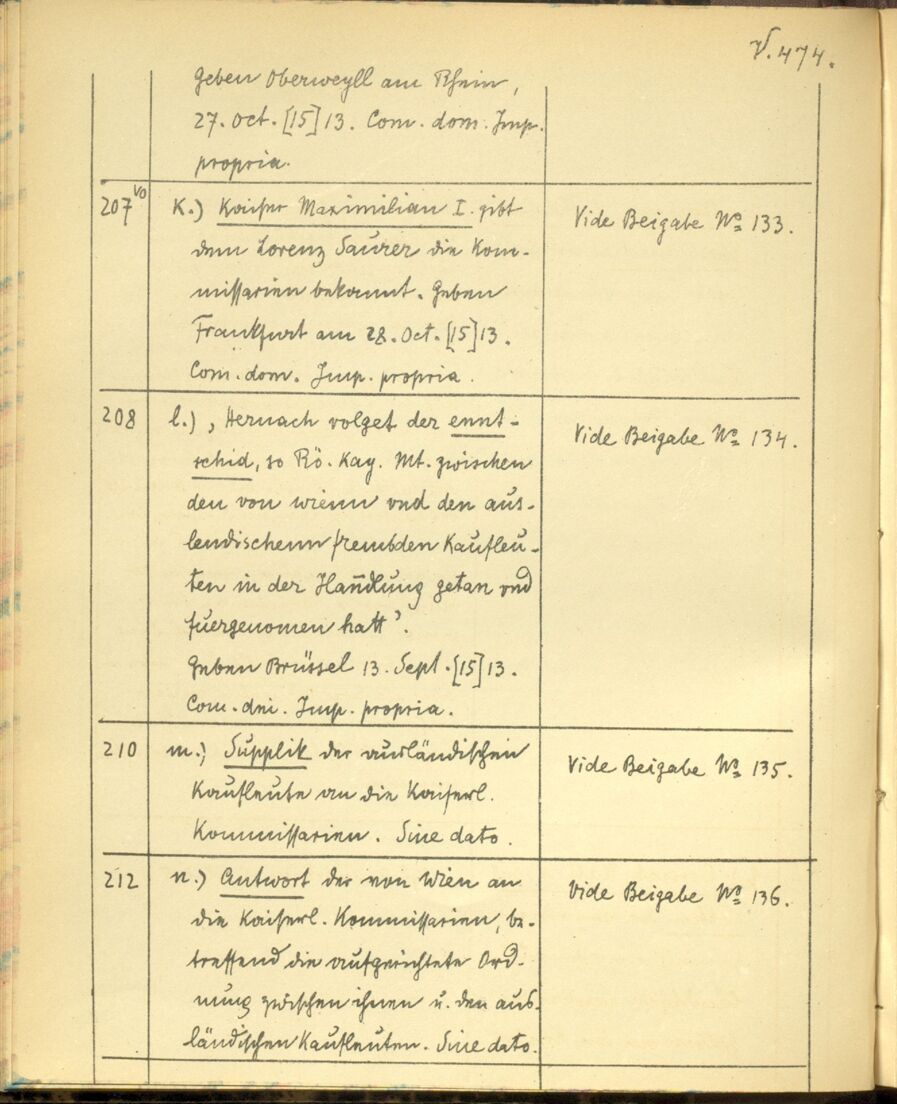 V. 474.
Geben Oberweyll am Rhein,
27. Oct. [15]13. Com. dom. Imp.
propria.
207 vo K.) Kaiser Maximilian I. gibt Vide Beigabe No 133.
dem Lorenz Saurer die Kom-
missarien bekannt. Geben
Frankfurt am 28. Oct. [15]13.
Com. dom. Imp. propria.
208 l.) ‚Hernach volget der ennt- Vide Beigabe No 134.
schid, so Rö. Kay. Mt. zwischen
den von wienn vnd den aus-
lendischenn frembden Kaufleu-
ten in der Han̄dlung getan vnd
fuergenomen hatt’.
Geben Brüssel 13. Sept. [15]13.
Com. dni. Imp. propria.
210 m.) Supplik der ausländischen Vide Beigabe No 135.
Kaufleute an die Kaiserl.
Kommissarien. Sine dato.
212 n.) Antwort der von Wien an Vide Beigabe No 136.
die Kaiserl. Kommissarien, be-
treffend die aufgerichtete Ord-
nung zwischen ihnen u. den aus-
ländischen Kaufleuten. Sine dato.